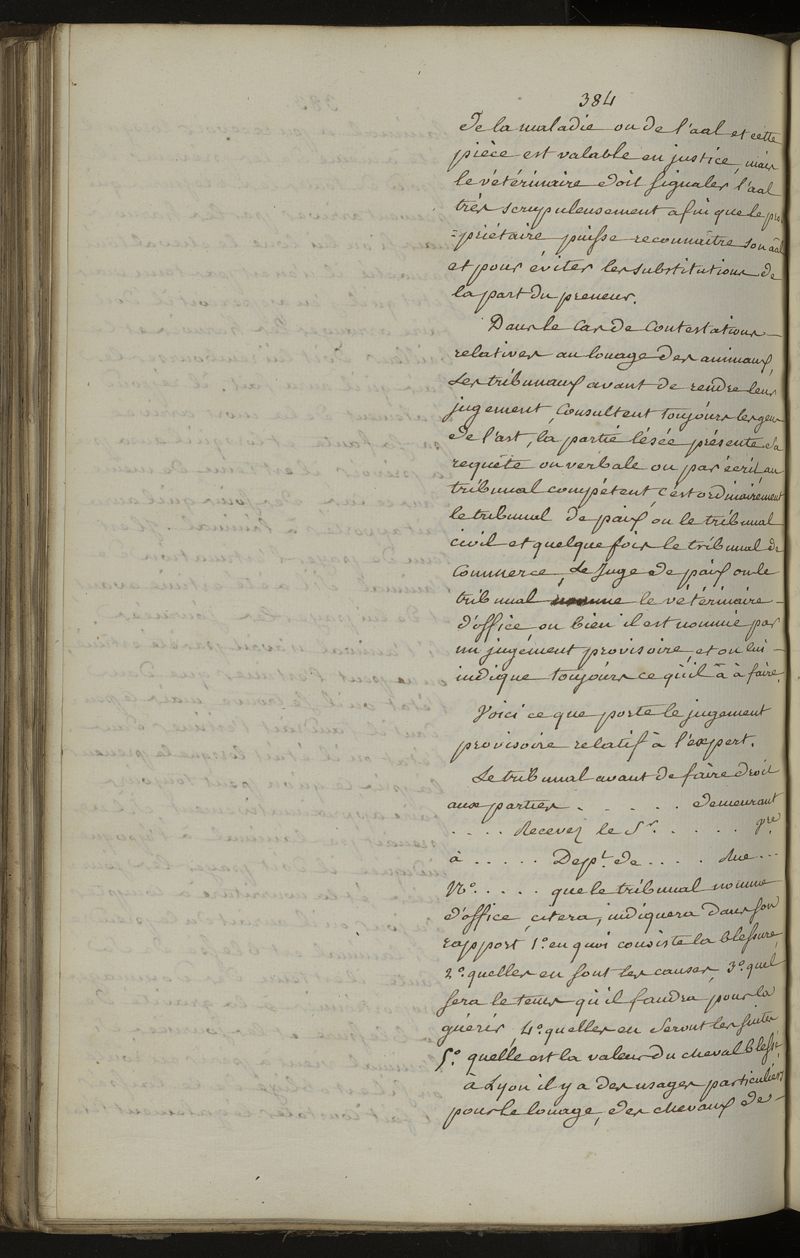 384
de la maladie ou de l'aal et cette
pièce est valable en justice, mais
le vétérinaire doit signaler l'aal
très scrupuleusement afin que le pro
=priétaire puisse reconnaitre son aal
et pour éviter les substitutions de
la part du preneur.
Dans le cas de contestations
relatives au louage des animaux,
les tribunaux avant de rendre leur
jugement, consultent toujours les gens
de l'art, la partie lésée présente sa
requête ou verbale ou par écrit au
tribunal compétent, c'est ordinairement
le tribunal de paix, ou le tribunal
civil et quelque fois le tribunal de
Commerce, le Juge de paix ou le
tribunal nomme le vétérinaire
d'office ou bien il est nommé par
un jugement provisoire, et on lui
indique toujours ce qu'il a à faire.
Voici ce que porte le jugement
provisoire relatif à l'expert.
Le tribunal avant de faire droit
aux parties . . . . . demeurant
. . . . Recevez le Sr. . . . . . pre
à . . . . . Dept. de . . . . Rue . . .
No. . . . . que le tribunal nomme
d'office, citera, indiquera dans son
rapport 1o. en quoi consiste la blessure,
2o. quelles en sont les causes, 3o. quel
sera le tems qu'il faudra, pour la
guérir, 4o. quelles en seront les suites
5o. quelle est la valeur du cheval blessé
à Lyon il y a des usages particuliers
pour le louage, des chevaux de